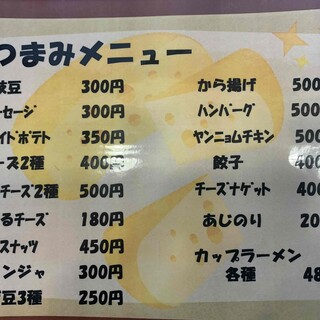 つまみメニュー
枝豆 300円
ーセージ 300円
イドポテト 350円
ーズ2種 400円
チーズ2種 500円
るチーズ 180円
スナッツ 450円
ンジャ 300円
豆3種 250円
から揚げ 500
ハンバーグ 500
ヤンニョムチキン 500
餃子 400
チーズナゲット 400
あじのり 20
カップラーメン
各種 48